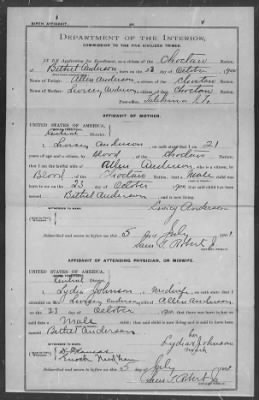 BIRTH AFFIDAVIT.
DEPARTMENT OF THE INTERIOR,
COMMISSION TO THE FIVE CIVILIZED TRIBES.
IN RE Application for Enrollment, as a citizen of the Choctaw Nation,
of Bethel Anderson, born on the 23 day of October, 1900
Name of Father: Allen Anderson a citizen of the Choctaw Nation.
Name of Mother: Anderson a citizen of the Choctaw Nation.
Post-office, Talihina I.T.
AFFIDAVIT OF MOTHER.
UNITED STATES OF AMERICA,
Central District.
I, Anderson, on oath state that I am 21
years of age and a citizen, by Blood, of the Choctaw Nation;
that I am the lawful wife of Allen Anderson, who is a citizen, by
Blood of the Choctaw Nation; that a Male child was
born to me on the 23 day of October, that said child has been named
Bethel Anderson, and is now living.
Anderson
WITNESSES TO MARK:
Subscribed and sworn to before me this 5 day of July, 1901
AFFIDAVIT OF ATTENDING PHYSICIAN, OR MIDWIFE.
UNITED STATES OF AMERICA,
Central
I, Lydia Johnson, a midwife, on oath state that I
attended on Anderson, wife of Allen Anderson
on the 23 day of October, that there was born to her on said date a
Male child; that said child is now living and is said to have been named
Bethel Anderson
Lydia Johnson
her mark
WITNESSES TO MARK:
Needham
Subscribed and sworn to before me this 5 day of July